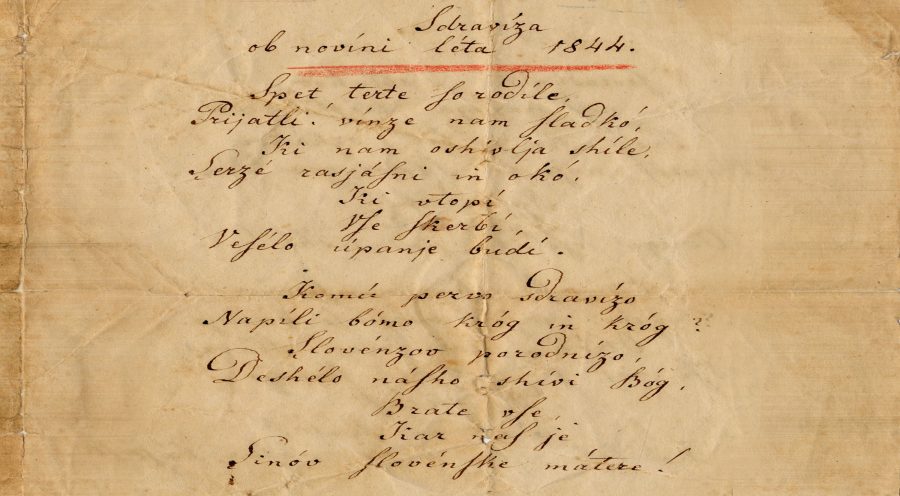 Sdravíza
ob novíni léta 1844.
Spet terte ſo rodíle,
Prijatli! vínze nam ſladkó,
Ki nam oshívlja shíle,
Serzé rasjáſni in okó,
Ki vtopí
Vſe ſkerbí,
Veſélo úpanje budí.
Komú pervo sdravízo
Napíli bómo króg in króg?
Slovénzov porodnízo,
Deshélo náſho shívi Bóg,
Brate vſe,
Kar naſ je
Sinóv ſlovénſke mátere!